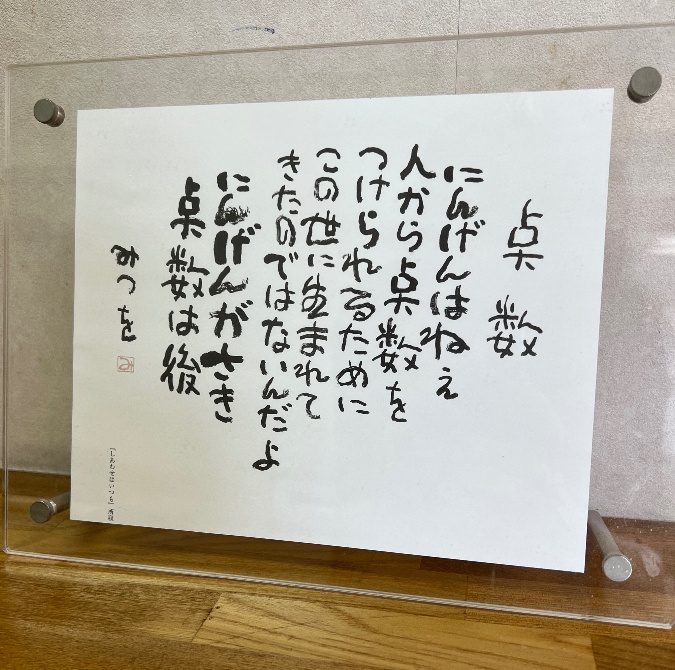 点数
にんげんはねぇ
人から点数を
つけられるために
この世に生まれて
きたのではないんだよ
にんげんがさき
点数は後
みつを
『しあわせはいつも』所収